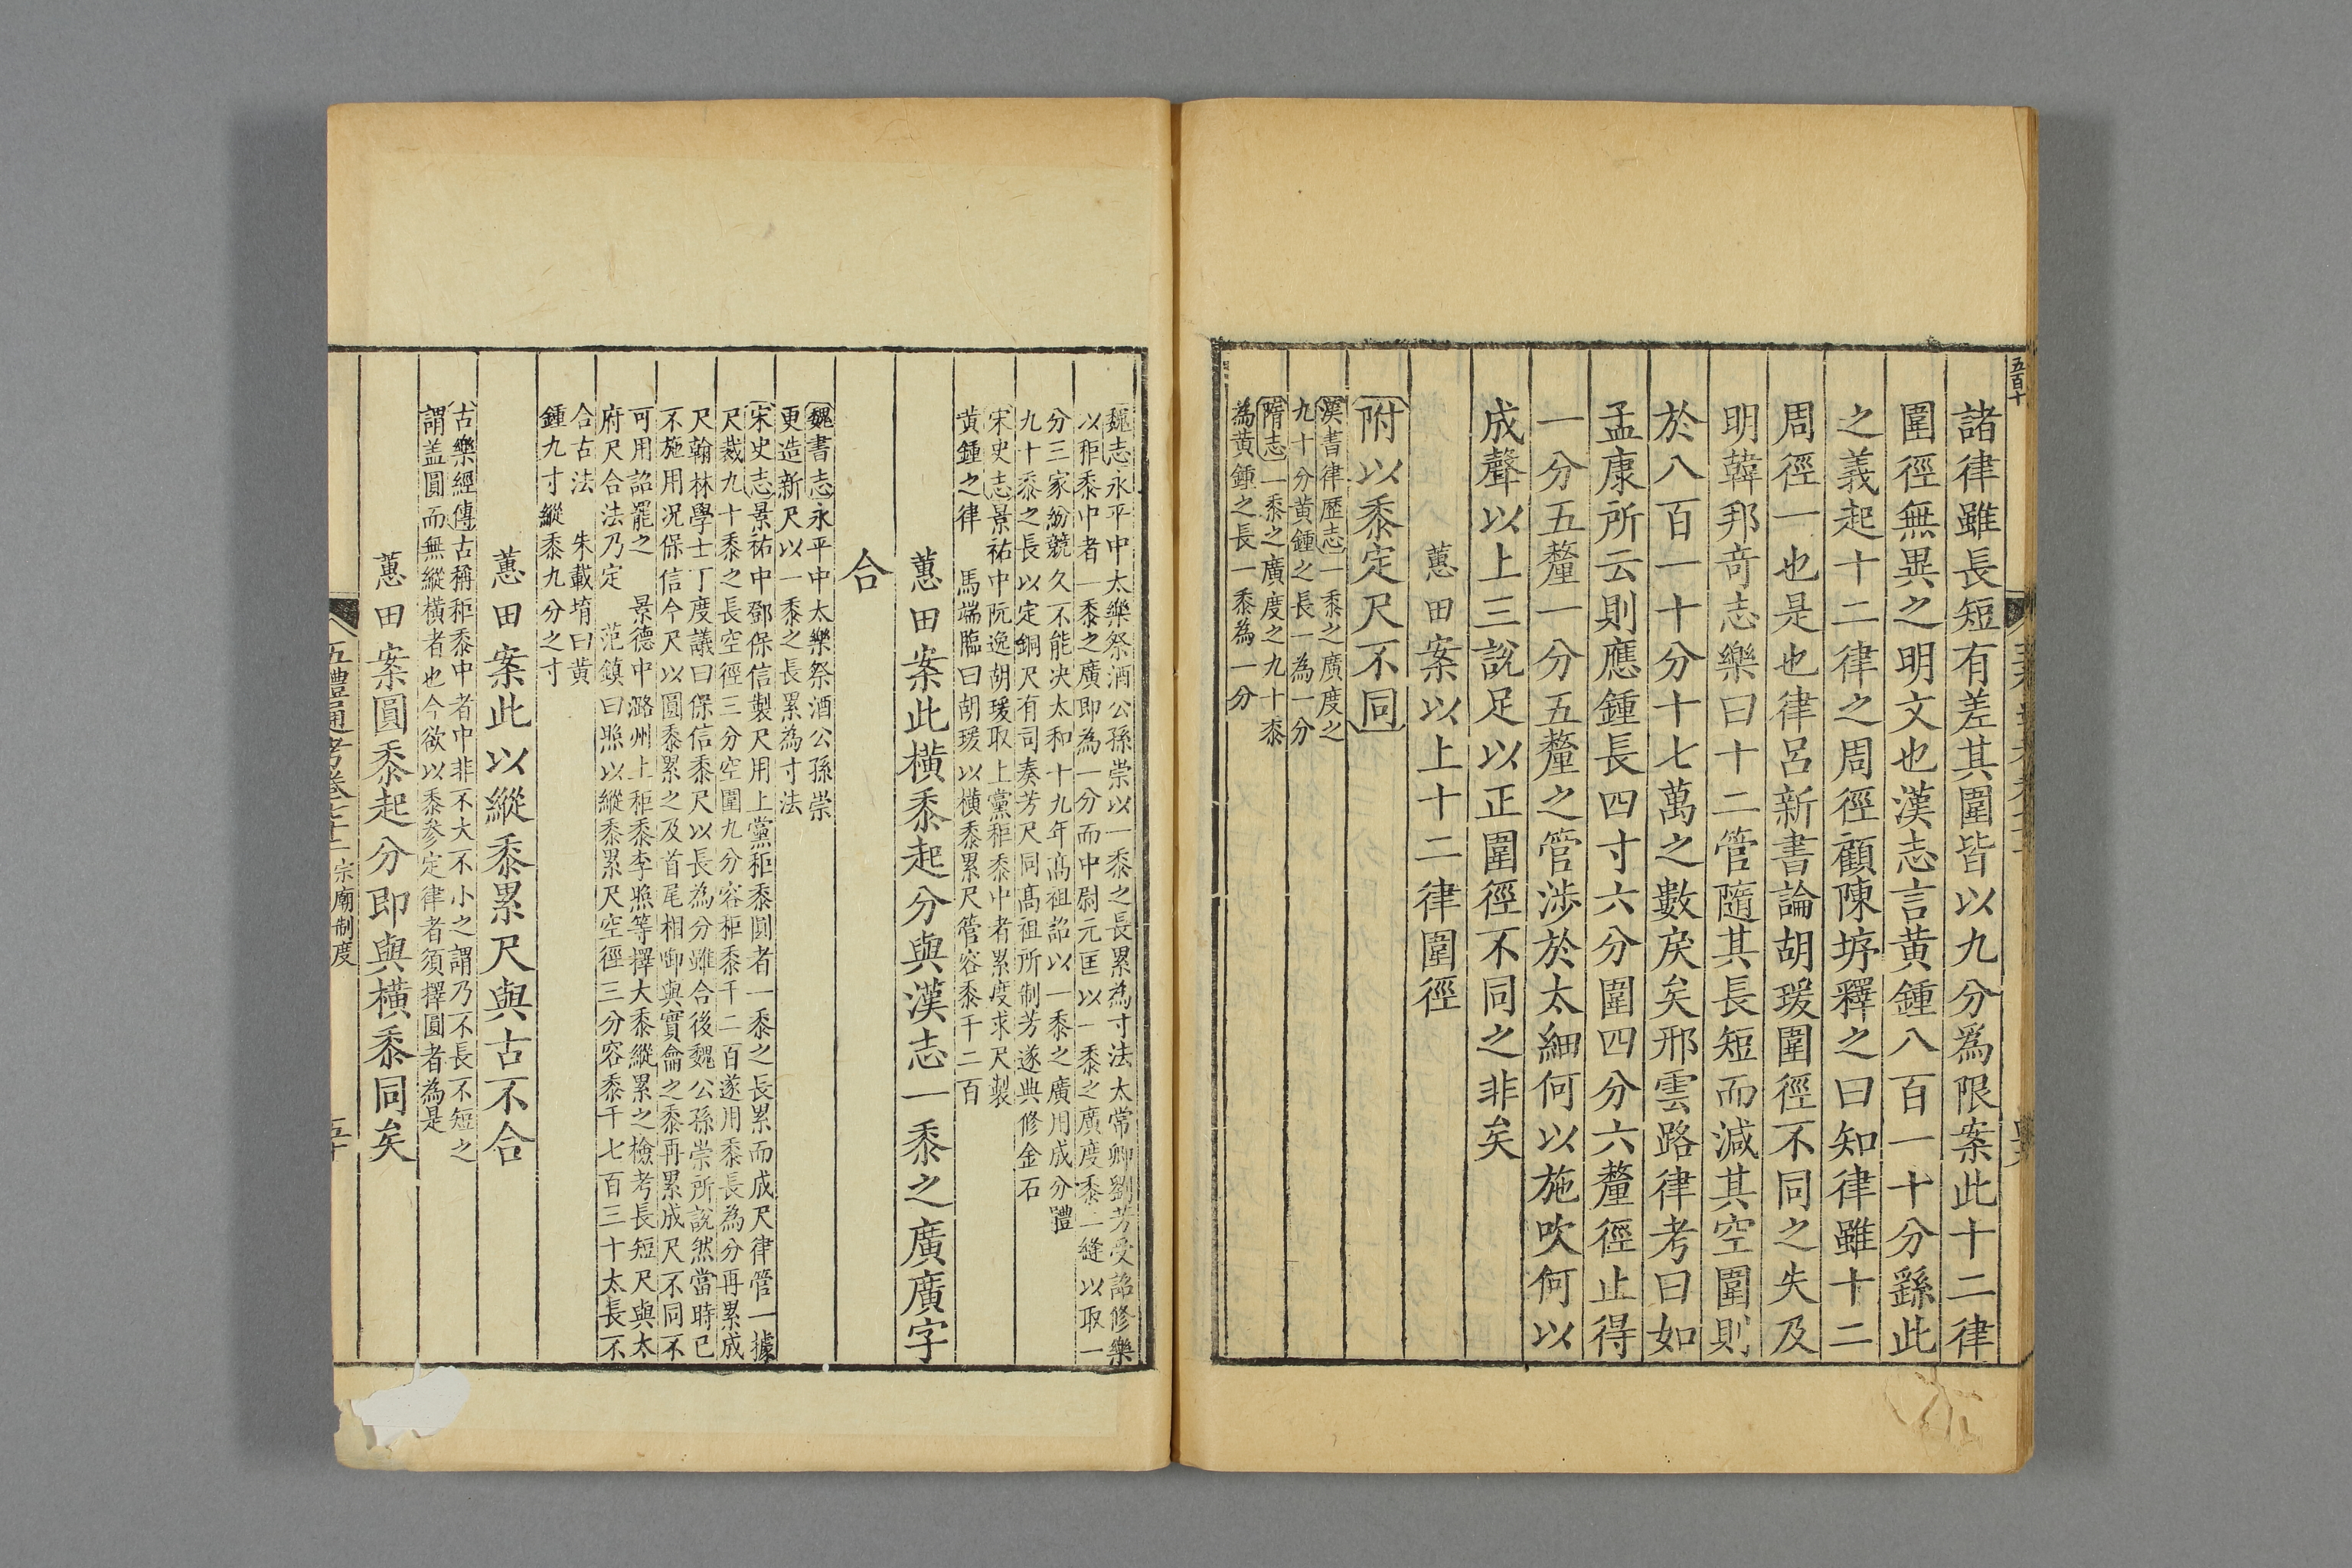 五百十
諸律雖長短有差其圍皆以九分爲限案此十二律
圍徑無異之明文也漢志言黃鍾八百一十分繇此
之義起十二律之周徑顧陳垿釋之曰知律雖十二
周徑一也是也律呂新書論胡瑗圍徑不同之失及
明韓邦奇志樂曰十二管隨其長短而減其空圍則
於八百一十分十七萬之數戾矣邢雲路律考曰如
孟康所云則應鍾長四寸六分圍四分六釐徑止得
一分五釐一分五釐之管涉於太細何以施吹何以
成聲以上三說足以正圍徑不同之非矣
蕙田案以上十二律圍徑
附以黍定尺不同
漢書律歷志一黍之廣度之
九十分黃鍾之長一為一分
隋志一黍之廣度之九十黍
為黃鍾之長一黍為一分
魏志永平中太樂祭酒公孫崇以一黍之長累為寸法太常卿劉芳受詔修樂
以秬黍中者一黍之廣即為一分而中尉元匡以一黍之廣度黍二縫以取一
分三家紛競久不能決太和十九年高祖詔以一黍之廣用成分體
九十黍之長以定銅尺有司奏芳尺同高祖所制芳遂典修金石
宋史志景祐中阮逸胡瑗取上黨秬黍中者累度求尺製
黃鍾之律　馬端臨曰胡瑗以橫黍累尺管容黍千二百
蕙田案此橫黍起分與漢志一黍之廣廣字
合
魏書志永平中太樂祭酒公孫崇
更造新尺以一黍之長累為寸法
宋史志景祐中鄧保信製尺用上黨秬黍圓者一黍之長累而成尺律管一據
尺裁九十黍之長空徑三分空圍九分容秬黍千二百遂用黍長為分再累成
尺翰林學士丁度議曰保信黍尺以長為分雖合後魏公孫崇所說然當時已
不施用況保信今尺以圓黍累之及首尾相銜與實龠之黍再累成尺不同不
可用詔罷之　景德中潞州上秬黍李照等擇大黍縱累之檢考長短尺與太
府尺合法乃定　范鎮曰照以縱黍累尺空徑三分容黍千七百三十太長不
合古法　朱載堉曰黃
鍾九寸縱黍九分之寸
蕙田案此以縱黍累尺與古不合
古樂經傳古稱秬黍中者中非不大不小之謂乃不長不短之
謂盖圓而無縱橫者也今欲以黍參定律者須擇圓者為是
蕙田案圓黍起分即與橫黍同矣
五禮通考卷七十二　宗廟制度　五十